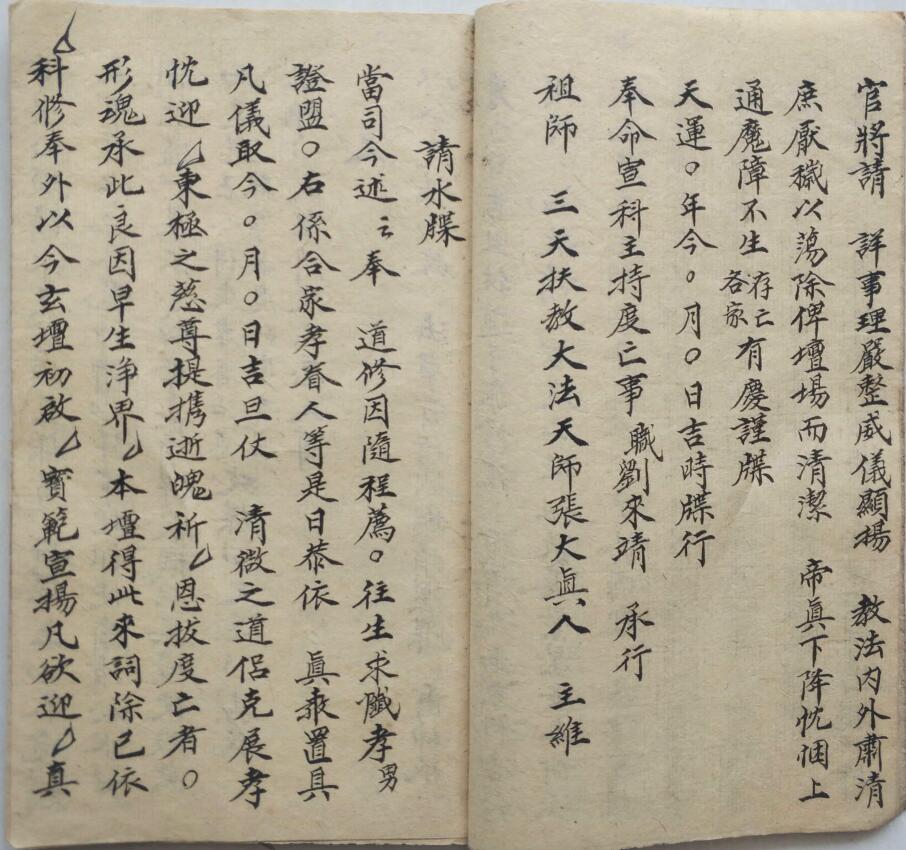 官將請 詳事理嚴整威儀顯揚 教法内外肅清
庶厭穢以蕩除俾壇場而清潔 帝眞下降忱悃上
通魔障不生存亡各家有慶謹牒
天運〇年今〇月〇日吉時牒行
奉命宣科主持度亡事 職劉來靖 承行
祖師 三天扶教大法天師張大眞人 主維
請水牒
當司今述〻奉 道修因隨程薦〇往生求懺孝男
證盟〇右係合家孝眷人等是日恭依 眞乘置具
凡儀取今〇月〇日吉旦仗 清微之道侶克展孝
忱迎 東極之慈尊提携逝魄祈 恩拔度亡者〇
形魂承此良因早生淨界 本壇得此來詞除已依
科修奉外以今玄壇初啟 寳範宣揚凡欲迎 真